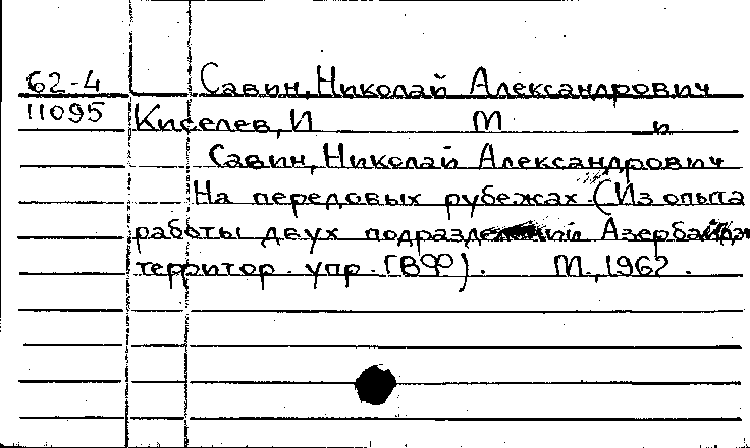 62-4 Савин, Николай Александрович
11095 Киселев, И М и
Савин, Николай Александрович
На передовых рубежах (Из опыта
работы двух подразделений Азербайдж
территор. упр. ГВФ). М., 1962.